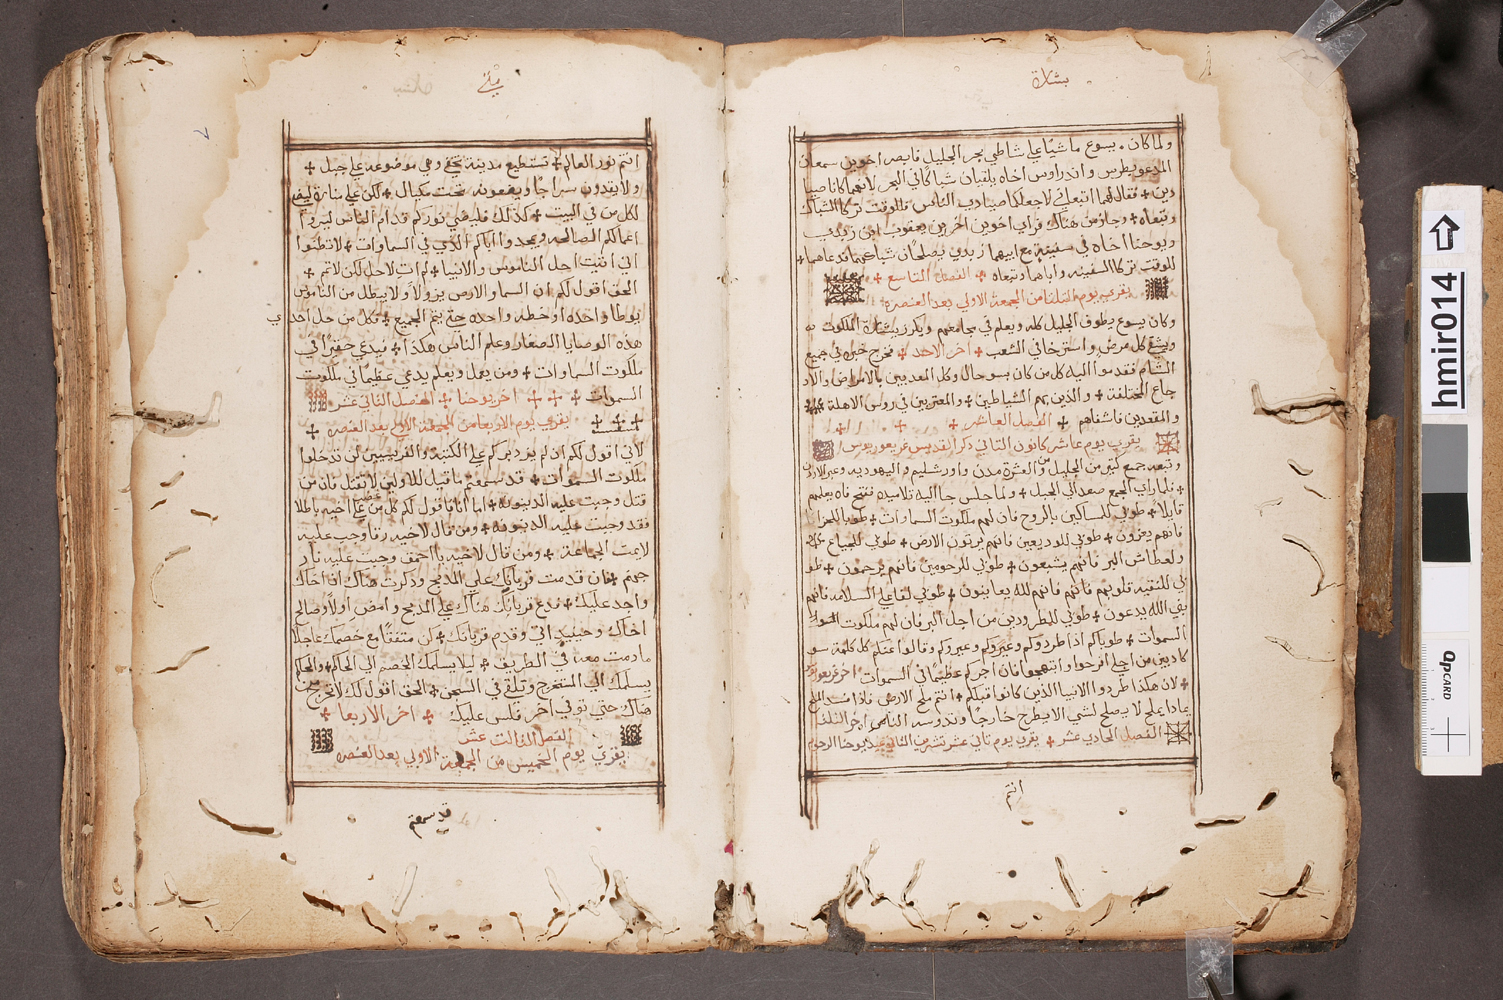 بشارة
ولما كان يسوع ماشيًا علي شاطي بحر الجليل فابصر اخوين سمعان
المدعو بطرس واندراوس اخاه يلقيان شباكًا في البحر لانهما كانا صيا
دين + فقال لهما اتبعاني لاجعلكما صيادي الناس فللوقت تركا الشباك
وتبعاه + وجاز من هناك فراي اخوين اخرين يعقوب ابن زبدي
ويوحنا اخاه في سفينه مع ابيهما زبدي يصلحان شباكهما فدعاهما +
للوقت تركا السفينه واباهما وتبعاه + الفصل التاسع +
يقري يوم الثلثا من الجمعة الاولي بعد العنصره
وكان يسوع يطوف الجليل كله ويعلم في مجامعهم ويكرز ببشارة الملكوت
ويشفي كل مرض واسترخا في الشعب + اخر الاحد + فخرج خبره في جميع
الشام فقدموا اليه كل من كان بسو حال وكل المعذبين بالامراض والاو
جاع المختلفة + والذين بهم الشياطين + والمعتريين في روس الاهلة
والمقعدين فاشفاهم + الفصل العاشر +
يقري يوم عاشر كانون الثاني ذكر القديس غريغوريوس
وتبعه جمع كثير من الجليل ومن العشرة مدن واورشليم واليهوديه وعبر الاردن
+ فلما راي الجمع صعد الي الجبل + ولما جلس جا اليه تلاميذه ففتح فاه يعلمهم
قايلا + طوبي للمساكين بالروح فان لهم ملكوت السماوات + طوبا للحزانا
فانهم يعزون + طوبي للوديعين فانهم يرثون الارض + طوبي للجياع
والعطاش البر فانهم يشبعون + طوبي للرحومين فانهم يرحمون + طو
بي للنقيه قلوبهم فانهم لله يعاينون + طوبي لفاعلي السلامه فانهم
بني الله يدعون + طوبي للمطرودين من اجل البر فان لهم ملكوت
السموات + طوباكم اذا طردوكم وعيروكم وقالوا عنكم كل كلمة سو
كاذبين من اجلي افرحوا وابتهجوا فان اجركم عظيمًا في السموات
+ لان هكذا طردوا الانبيا الذين كانوا قبلكم + انتم ملح الارض فاذا فسد الملح
بماذا يملح لا يصلح لشي الا يطرح خارجًا وتدوسه الناس اخر الثلثا
الفصل الحادي عشر + يقري يوم ثاني عشر تشرين الثاني عيد يوحنا الرحوم
انتم
متي
انتم نور العالم + تستطيع مدينة تخفي وهي موضوعه علي جبل +
ولا يقدون سراجًا ويضعونه تحت مكيال + لكن علي منارة ليضي
لكل من في البيت + كذلك فليضي نوركم قدام الناس ليروا
اعمالكم الصالحه ويمجدوا اباكم الذي في السماوات + لا تظنوا
اني اتيت احل الناموس والانبيا + لم ات لاحل لكن لاتمم +
الحق اقول لكم ان السما والارض يزولا ولا يبطل من الناموس
يوطا واحده او خطه واحده حتي يتم الجميع + فكل من حل احدي
هذه الوصايا الصغار وعلم الناس هكذا + يدعي حقيرًا في
ملكوت السماوات + ومن يعمل ويعلم يدعي عظيمًا في ملكوت
السموات + + + اخر يوحنا + الفصل الثاني عشر
يقري يوم الاربعا من الجمعة الاولي بعد العنصره +
لاني اقول لكم ان لم يزد بركم علي الكتبه والفريسيين لن تدخلوا
ملكوت السموات + قد سمعتم ما قيل للاولين لا تقتل فان من
قتل وجبت عليه الدينونة + اما انا فاقول لكم كل من غضب علي اخيه باطلا
فقد وجبت عليه الدينونه + ومن قال لاخيه رقا وجب عليه
لايمت الجماعة + ومن قال لاخيه يا احمق وجبت عليه نار
جهنم + فان قدمت قربانك علي المذبح وذكرت هناك ان اخاك
واجد عليك + فدع قربانك هناك علي المذبح وامض اولا وصالح
اخاك وحينيذ اتي وقدم قربانك + كن متفقًا مع خصمك عاجلا
ما دمت معه في الطريق + ليلا يسلمك الخصم الي الحاكم + والحاكم
يسلمك الي المستخرج وتلقي في السجن + الحق اقول لك لا تخرج من
هناك حتي توفي اخر فلس عليك + اخر الاربعا +
الفصل الثالث عشر
يقري يوم الخميس من الجمعة الاولي بعد العنصره
قد سمعتم
hmir014
QpCARD